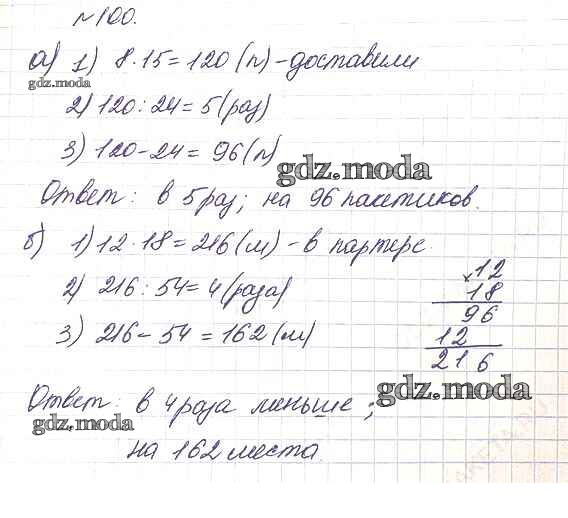 №100.
а) 1) 8·15=120(п)-доставили
gdz.moda
2) 120:24=5(раз)
3) 120-24=96(п)
gdz.moda
Ответ: в 5 раз; на 96 пакетиков.
б) 1) 12·18=216(м)-в партере.
2) 216:54=4(раза)
3) 216-54=162(м)
×12
18
96
12
216
Ответ: в 4 раза меньше;
gdz.moda
gdz.moda
на 162 места.